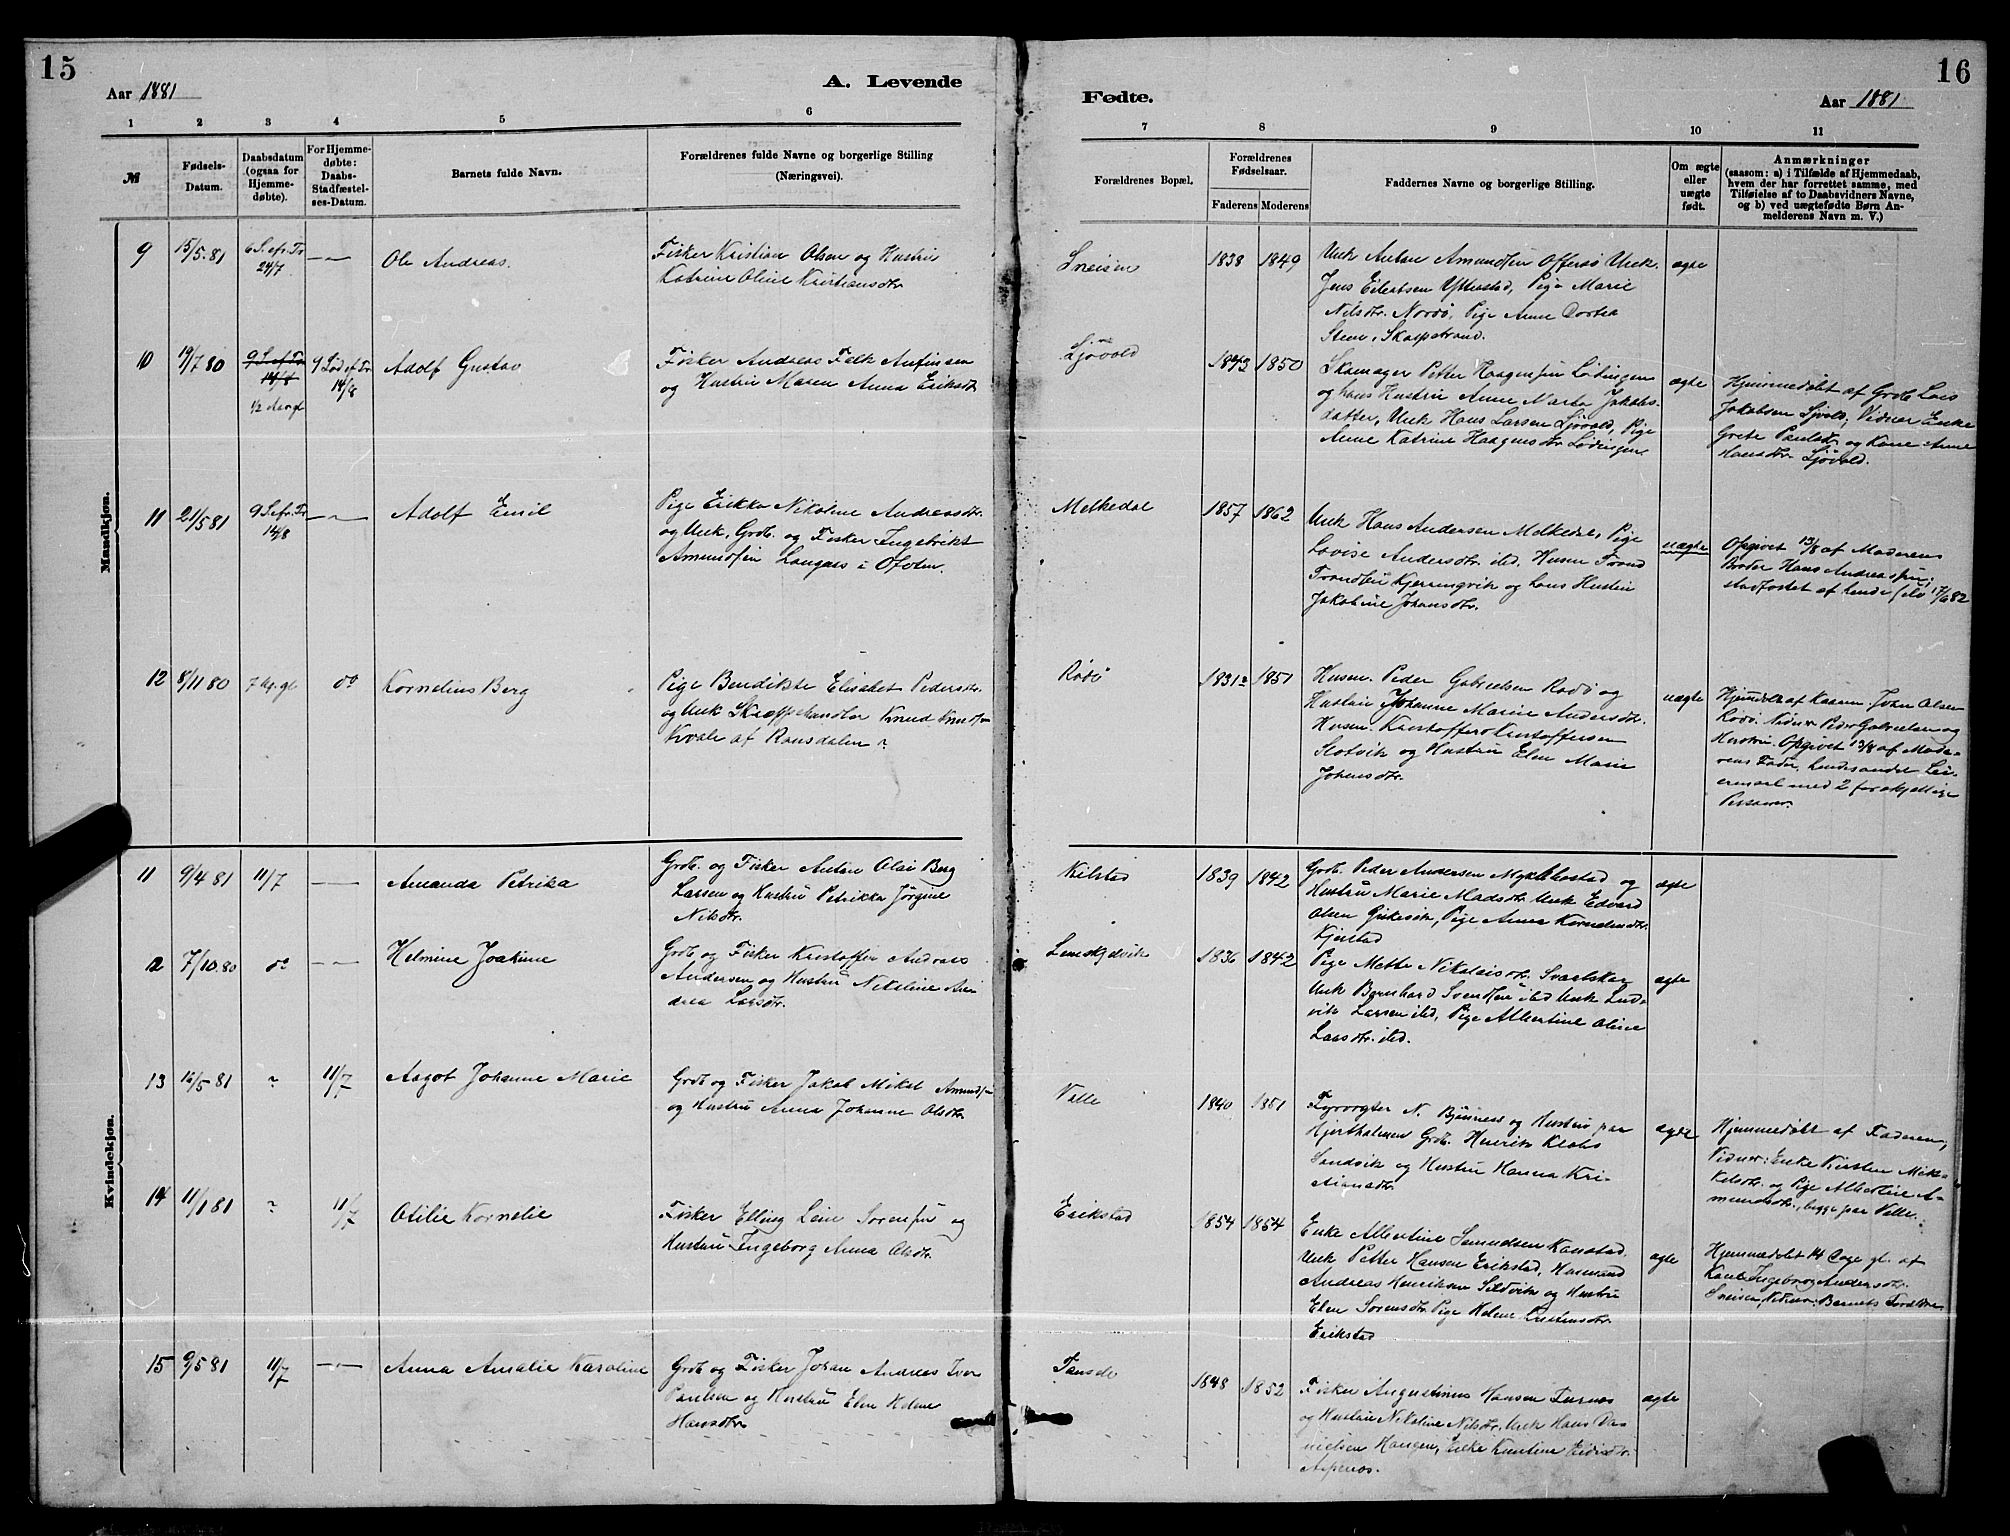 15
16
Aar 1881
A. Levende
Fødte.
Aar 1881
1 2 3 4 5 6
7 8 9 10 11
№
Fødsels-
Datum.
Daabsdatum
(ogsaa for
Hjemme-
døbte).
For Hjemme-
døbte:
Daabs-
Stadfæstel-
ses-Datum.
Barnets fulde Navn.
Forældrenes fulde Navne og borgerlige Stilling
(Næringsvei).
Forældrenes Bopæl.
Forældrenes
Fødselsaar.
Faderens Moderens
Faddernes Navne og borgerlige Stilling.
Om ægte
eller
uægte
født.
Anmærkninger
(saasom: a) i Tilfælde af Hjemmedaab,
hvem der har forrettet samme, med
Tilføielse af to Daabsvidners Navne,
og b) ved uægtefødte Børn An-
melderens Navn m. V.)
Mandkjøn.
9
15/5.81
6 S. ef. Tr
24/7
Ole Andreas.
Fisker Kristian Olsen og Hustru
Katrine Oline Kristiansdtr
Sneisen
1838 1849
Unk Anton Amundsen Offersø Unk.
Jens Eilertsen Ytterstad, Pige Marie
Nilsdtr. Nordø, Pige Anne Dortea
Steen, Skarpstrand.
ægte
10
19/7 80
9 S. ef Tr
14/8
1/2 Aar gl
9 Sød ef Tr
14/8
Adolf Gustav
Fisker Andreas Falk Anfinsen
og Hustru Maren Anna Eriksdtr
Ljøvold
1843 1850
Skomager Petter Haagensen Lødingen
og hans Hustru Anne Marta Jakobs-
datter, Unk Hans Larsen Ljøvold, Pige
Anne Katrine Haagensdtr Lødingen
ægte
Hjemmedøbt af Grdb Lars
Jakobsen Ljøvold, Vidner Enke
Grete Paulsdtr. og Kone Anne
Hansdtr. Ljøvold.
11
21/5 81
9 S. ef. Tr
14/8
Adolf Emil
Pige Erikka Nikoline Andreasdtr.
og Unk, Grdb. og Fisker Ingebrikt
Amundsen i Ofoten.
Melkedal
1857 1862
Unk Hans Andersen Melkedal, Pige
Lovise Andersdtr. ibd. Husm Trond
Trondsen Kjerringvik og hans Hustru
Jakobine Johansdtr.
uægte
Opgivet 13/8 af Moderens
Broder Hans Andreassen,
stadfæstet af hende selv 17/6 82
12
8/11 80
7 Ug. gl
do
Kornelius Berg
Pige Bendikte Elisabet Pedersdtr.
og Unk Skræppehandler Knud Knudsen
Kvale af Ransdalen ?
Rødø
1831? 1851
Husm. Peder Gabrielsen Rødø og
Hustru Johanne Marie Andersdtr.
Husm. Kristoffer Kristoffersen
Slotvik og Hustru Elen Marie
Johansdtr.
uægte
Hjemdøbt af Kaarm. Johan Olsen
Rødø. Vidner Peder Gabrielsen og
Hustru. Opgivet 13/8 af Mode-
rens Fader, hendes andet Lei-
ermaal med 2 forskjellige
Personer.
Kvindekjøn.
11
9/4 81
11/7
Amanda Petrika
Grdb. og Fisker Anton Olai Berg
Larsen og Hustru Petrikka Jørgine
Nilsdtr.
Kilstad
1839 1842
Grdb. Peder Andersen Myklebostad og
Hustru Marie Madsdtr. Unk Edvard
Olsen, Pige Anna Korneliusdtr.
Kjerstad
ægte
12
7/10.80
do
Helmine Joakime
Grdb. og Fisker Kristoffer Andreas
Andersen og Hustru Nikoline An-
drea Larsdtr.
1836 1842
Pige Mette Nikolaisdtr. Svartskar
Unk Bernhard Svendsen ibd Unk Lud-
vik Larsen ibd, Pige Albertine Oline
Larsdtr. ibd.
ægte
13
16/5 81
?
11/7
Aagot Johanne Marie
Grdb og Fisker Jakob Mikal Amundsen
og Hustru Anna Johanne Olsdtr.
Valle
1840 1851
Fyrvogter N. Bjønness og Hustru paa
Hjertholmen Grdb. Henrik Klaus
Sandvik og Hustru Hanna Kri-
stiansdtr.
ægte
Hjemmedøbt af Faderen,
Vidner: Enke Kirsten Mik-
kelsdtr. og Pige Albertine A-
mundsdtr., begge paa Valle.
14
11/1 81
?
11/7
Otilie Kornelie
Fisker Elling Leier Sørensen og
Hustru Ingeborg Anna Olsdtr.
Erikstad
1854 1854
Enke Albertine Samuelsen Kanstad.
Unk Petter Hansen Erikstad, Husmand
Andreas Henriksen Sildvik og Hustru
Elen Sørensdtr. Pige Helene Kristensdtr.
Erikstad
ægte
Hjemmedøbt 14 Dage gl. af
Kone Ingeborg Andersdtr.
Sneisen, Vidner: Barnets Forældre
15
9/5 81
11/7
Anna Amalie Karoline
Grdb og Fisker Johan Andreas Iver
Paulsen og Hustru Elen Helene
Hansdtr.
1848 1852
Fisker Augustinus Hansen
og Hustru Nikoline Nilsdtr. Unk Hans Da-
nielsen Haugen, Enke Kristine
ægte